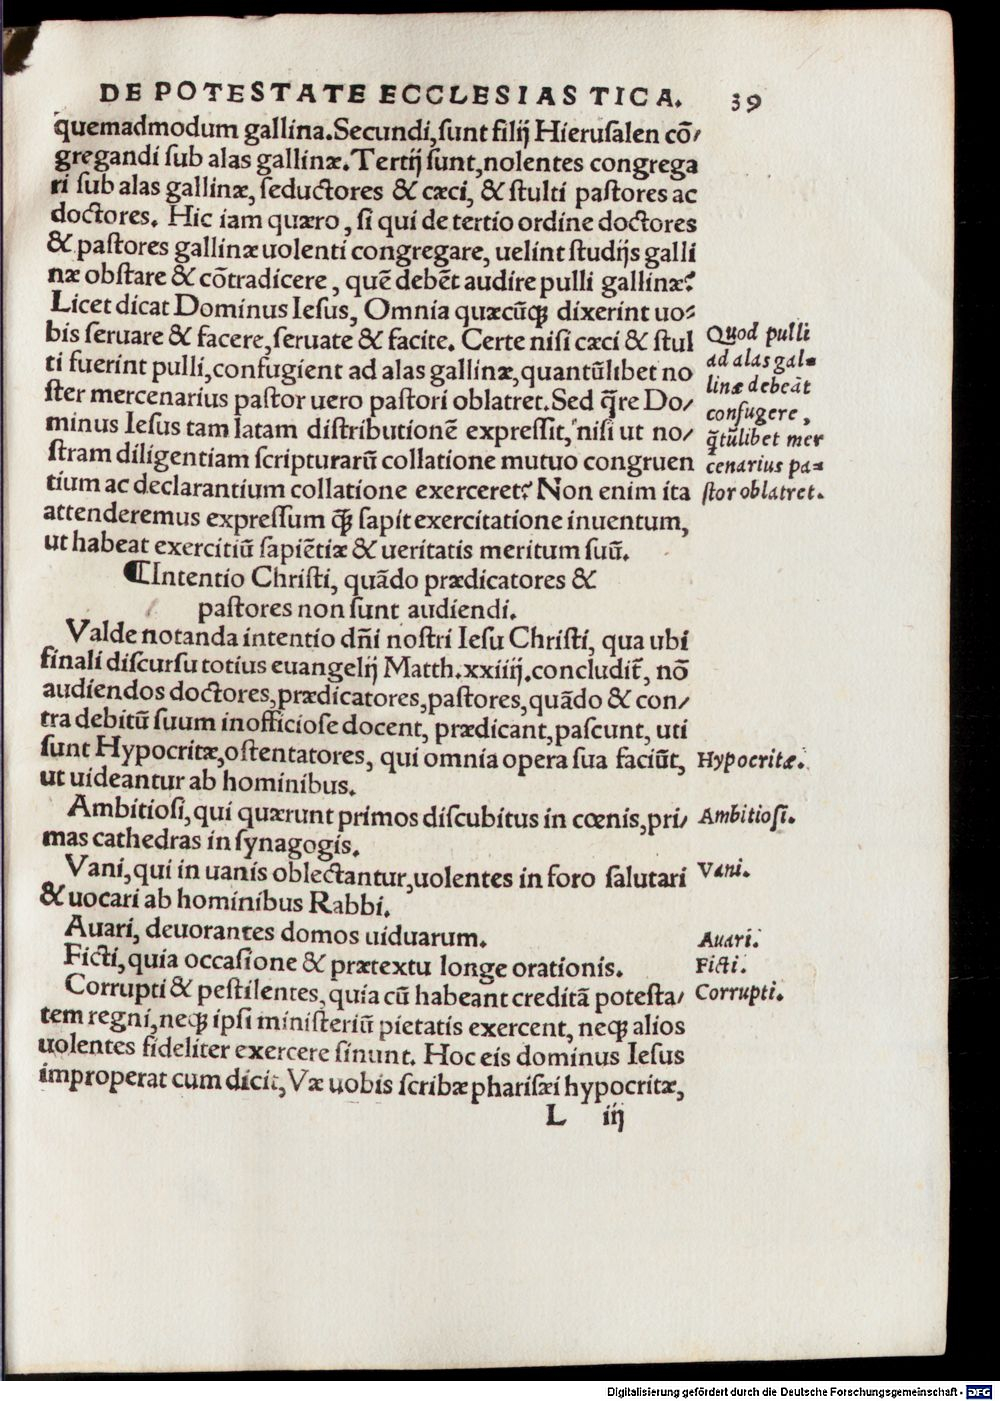 DE POTESTATE ECCLESIASTICA. 39
quemadmodum gallina. Secundi, ſunt filij Hieruſalen cō/
gregandi ſub alas gallinæ. Tertij ſunt, nolentes congrega
ri ſub alas gallinæ, ſeductores & cæci, & ſtulti paſtores ac
doctores. Hic iam quæro, ſi qui de tertio ordine doctores
& paſtores gallinæ uolenti congregare, uelint ſtudijs galli
næ obſtare & cōtradicere, quē debēt audire pulli gallinæ?
Licet dicat Dominus Ieſus, Omnia quæcūqꝫ dixerint uo-
bis ſeruare & facere, ſeruate & facite. Certe niſi cæci & ſtul
ti fuerint pulli, confugient ad alas gallinæ, quantūlibet no
ſter mercenarius paſtor uero paſtori oblatret. Sed q̄re Do/
minus Ieſus tam latam diſtributionē expreſſit, niſi ut no/
ſtram diligentiam ſcripturarū collatione mutuo congruen
tium ac declarantium collatione exerceret? Non enim ita
attenderemus expreſſum qꝫ̄ ſapit exercitatione inuentum,
ut habeat exercitiū ſapiētiæ & ueritatis meritum ſuū.
Quod pulli
ad alas gal-
linæ debeāt
confugere,
q̄tūlibet mer
cenarius pa-
ſtor oblatret.
¶Intentio Chriſti, quādo prædicatores &
paſtores non ſunt audiendi.
Valde notanda intentio dn̄i noſtri Ieſu Chriſti, qua ubi
finali diſcurſu totius euangelij Matth. xxiiij. concludit̄, nō
audiendos doctores, prædicatores, paſtores, quādo & con/
tra debitū ſuum inofficioſe docent, prædicant, paſcunt, uti
ſunt Hypocritæ, oſtentatores, qui omnia opera ſua faciūt,
ut uideantur ab hominibus.
Hypocritæ.
Ambitioſi, qui quærunt primos diſcubitus in cœnis, pri/
mas cathedras in ſynagogis.
Ambitioſi.
Vani, qui in uanis oblectantur, uolentes in foro ſalutari
& uocari ab hominibus Rabbi.
Vani.
Auari, deuorantes domos uiduarum.
Auari.
Ficti, quia occaſione & prætextu longe orationis.
Ficti.
Corrupti & peſtilentes, quia cū habeant creditā poteſta/
tem regni, neqꝫ ipſi miniſteriū pietatis exercent, neqꝫ alios
uolentes fideliter exercere ſinunt. Hoc eis dominus Ieſus
improperat cum dicit, Væ uobis ſcribæ phariſæi hypocritæ,
Corrupti.
L iij
Digitalisierung gefördert durch die Deutsche Forschungsgemeinschaft - DFG